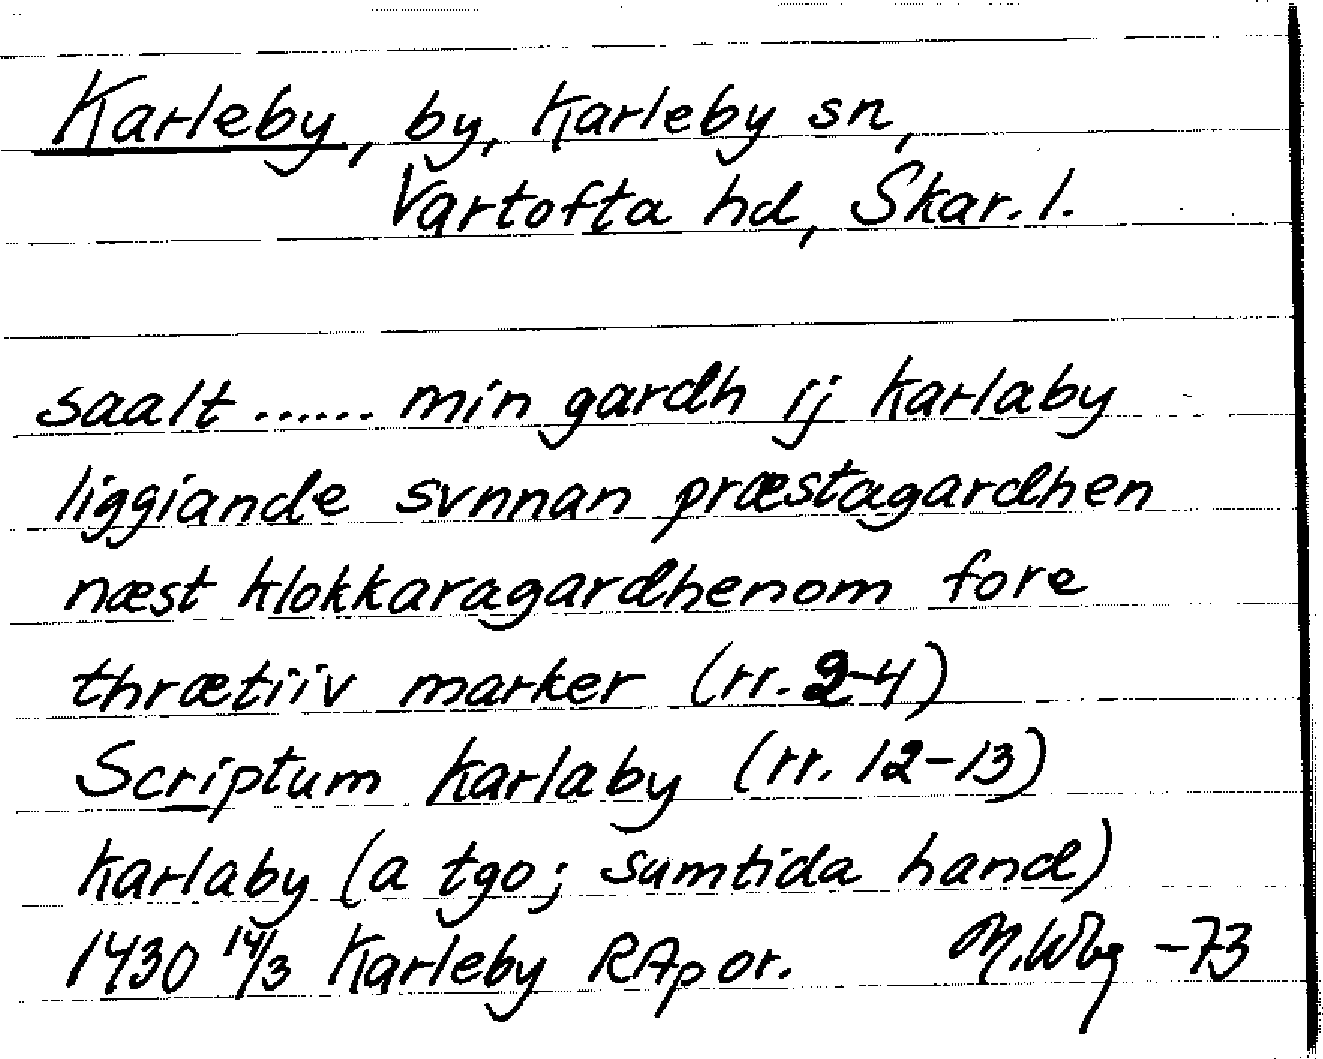 Karleby, by, Karleby sn,
Vartofta hd, Skar. l.
saalt ...... min gardh ij karlaby
liggiande svnnan præstagardhen
næst klokkaragardhenom fore
thrætiiv marker (rr. 2-4)
Scriptum karlaby (rr. 12-13)
karlaby (a tgo; samtida hand)
1430 14/3 Karleby RAp or. M.Wbg -73